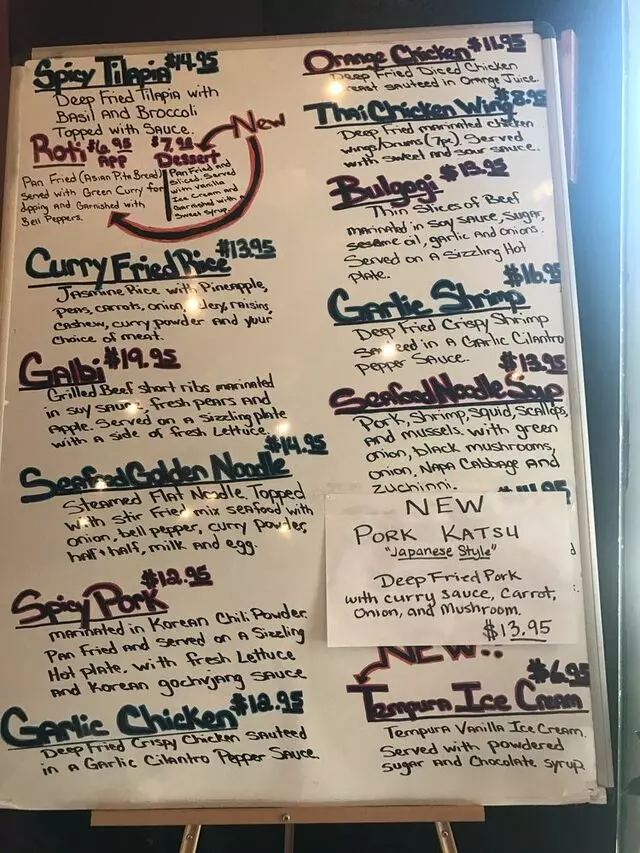 Spicy Tilapia $14.95
Deep Fried Tilapia with
Basil and Broccoli
Topped with Sauce.
New
Roti $6.95 App
Pan Fried (Asian Pita Bread)
served with Green Curry for
dipping and Garnished with
Bell Peppers.
$7.95 Dessert
Pan Fried and
Sliced. Served
with Vanilla
Ice Cream and
Garnished with
Sweet Syrup.
Curry Fried Rice $13.95
Jasmine Rice with Pineapple,
peas, carrots, onion, raisins,
cashew, curry powder and your
choice of meat.
Galbi $19.95
Grilled Beef short ribs marinated
in soy sauce, fresh pears and
Apple. Served on a Sizzling plate
with a side of fresh Lettuce.
Seafood Golden Noodle $14.95
Steamed Flat Noodle. Topped
with stir fried mix seafood with
onion, bell pepper, curry powder,
half + half, milk and egg.
Spicy Pork $12.95
marinated in Korean Chili Powder.
Pan Fried and served on a Sizzling
Hot plate. with fresh Lettuce
and Korean gochujang sauce
Garlic Chicken $12.95
Deep Fried Crispy Chicken Sauteed
in a Garlic Cilantro Pepper Sauce.
Orange Chicken $11.95
Deep Fried Diced Chicken
Breast sauteed in Orange Juice.
Thai Chicken Wing $8.95
Deep Fried marinated chicken
wings/Drums (7pc) Served
with sweet and sour sauce.
Bulgogi $13.95
Thin Slices of Beef
marinated in soy sauce, sugar,
sesame oil, garlic and onions.
Served on a Sizzling Hot
Plate.
Garlic Shrimp $16.95
Deep Fried Crispy Shrimp
Sauteed in a Garlic Cilantro
Pepper Sauce.
Seafood Noodle Soup $13.95
Pork, Shrimp, squid, scallops,
and mussels. with green
onion, black mushrooms,
onion, Napa Cabbage and
zuchinni.
NEW
Pork Katsu
"Japanese Style"
Deep Fried Pork
with curry sauce, Carrot,
Onion, and Mushroom.
$13.95
NEW!!
Tempura Ice Cream $6.95
Tempura Vanilla Ice Cream.
Served with powdered
sugar and Chocolate syrup.